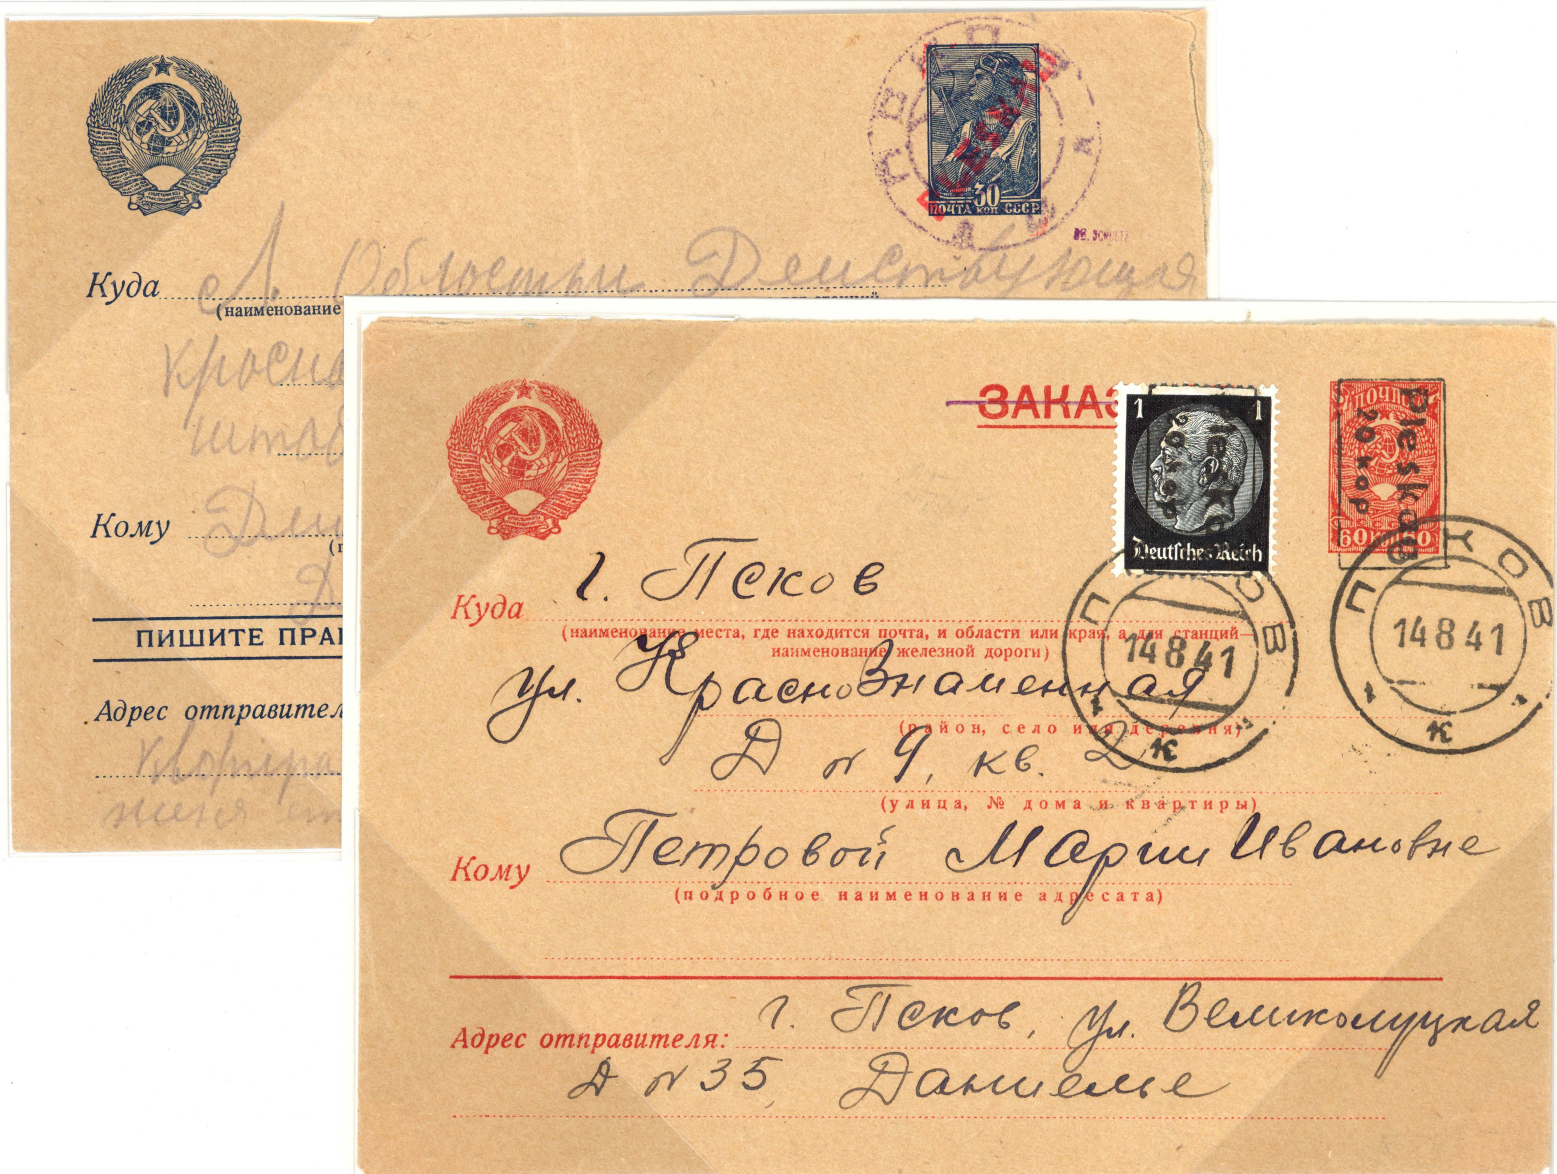 30
ПОЧТА коп СССР
Куда Л. Области Действующая
(наименование
красно
штаб
Кому
ПИШИТЕ ПРА
Адрес отправител
квартира
ЗАКАЗ
1 1
Pleskau
20 kop
Deutsches Reich
ПОЧТА
Pleskau
20 kop
60 60
Куда г. Псков
(наименование места, где находится почта, и области или края, а для станций—
наименование железной дороги)
ул. КрасноЗнаменная
(район, село или деревня)
Д № 9, кв. 2
(улица, № дома и квартиры)
ПСКОВ
14 8 41
ПСКОВ
14 8 41
Кому Петровой Марии Ивановне
(подробное наименование адресата)
Адрес отправителя: г. Псков, ул. Великолуцкая
Д № 35,